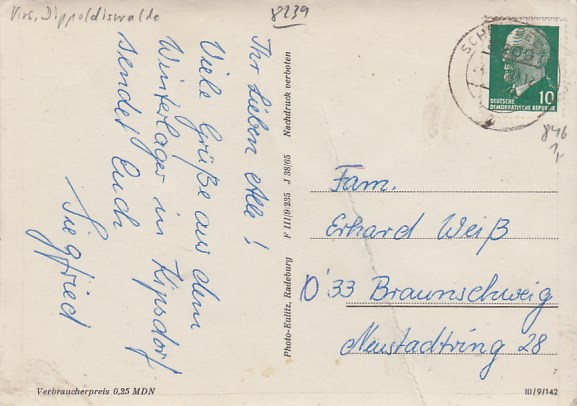 Krs. Dippoldiswalde
8239
Ihr Lieben Alle!
Viele Grüße aus dem
Winterlager in Kipsdorf
sendet Euch
Siegfried
Photo-Kulitz, Radeburg F III/9/235 J 38/65 Nachdruck verboten
DEUTSCHE
DEMOKRATISCHE REPUBLIK
10
846
1,-
Fam.
Erhard Weiß
D 33 Braunschweig
Neustadtring 28
Verbraucherpreis 0,25 MDN
III/9/142